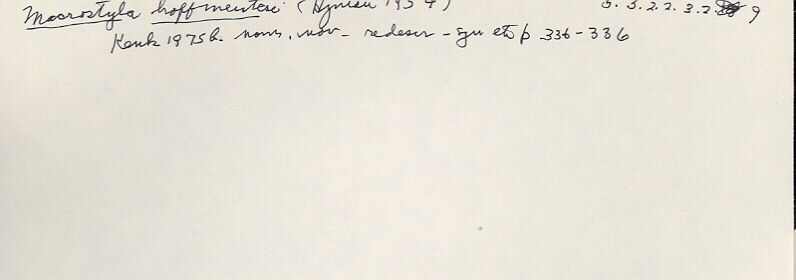 Macrostyla hoffmeisteri (Hyman 1954) 3. 3. 2. 2. 3. 2. 9
Kenk 1975b. nom. nov - redescr - syn etc p 336-336